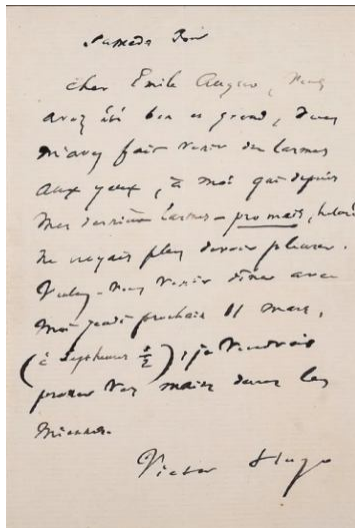 Samedi soir
cher Emile Augier, vous
avez été bon et grand, vous
m'avez fait venir des larmes
aux yeux, à moi qui depuis
mes dernières larmes hélas!
ne croyais plus devoir pleurer.
Voulez-vous venir dîner avec
moi jeudi prochain 11 mars,
(à sept heures ½) ; je voudrais
presser vos mains dans les
miennes.
Victor Hugo